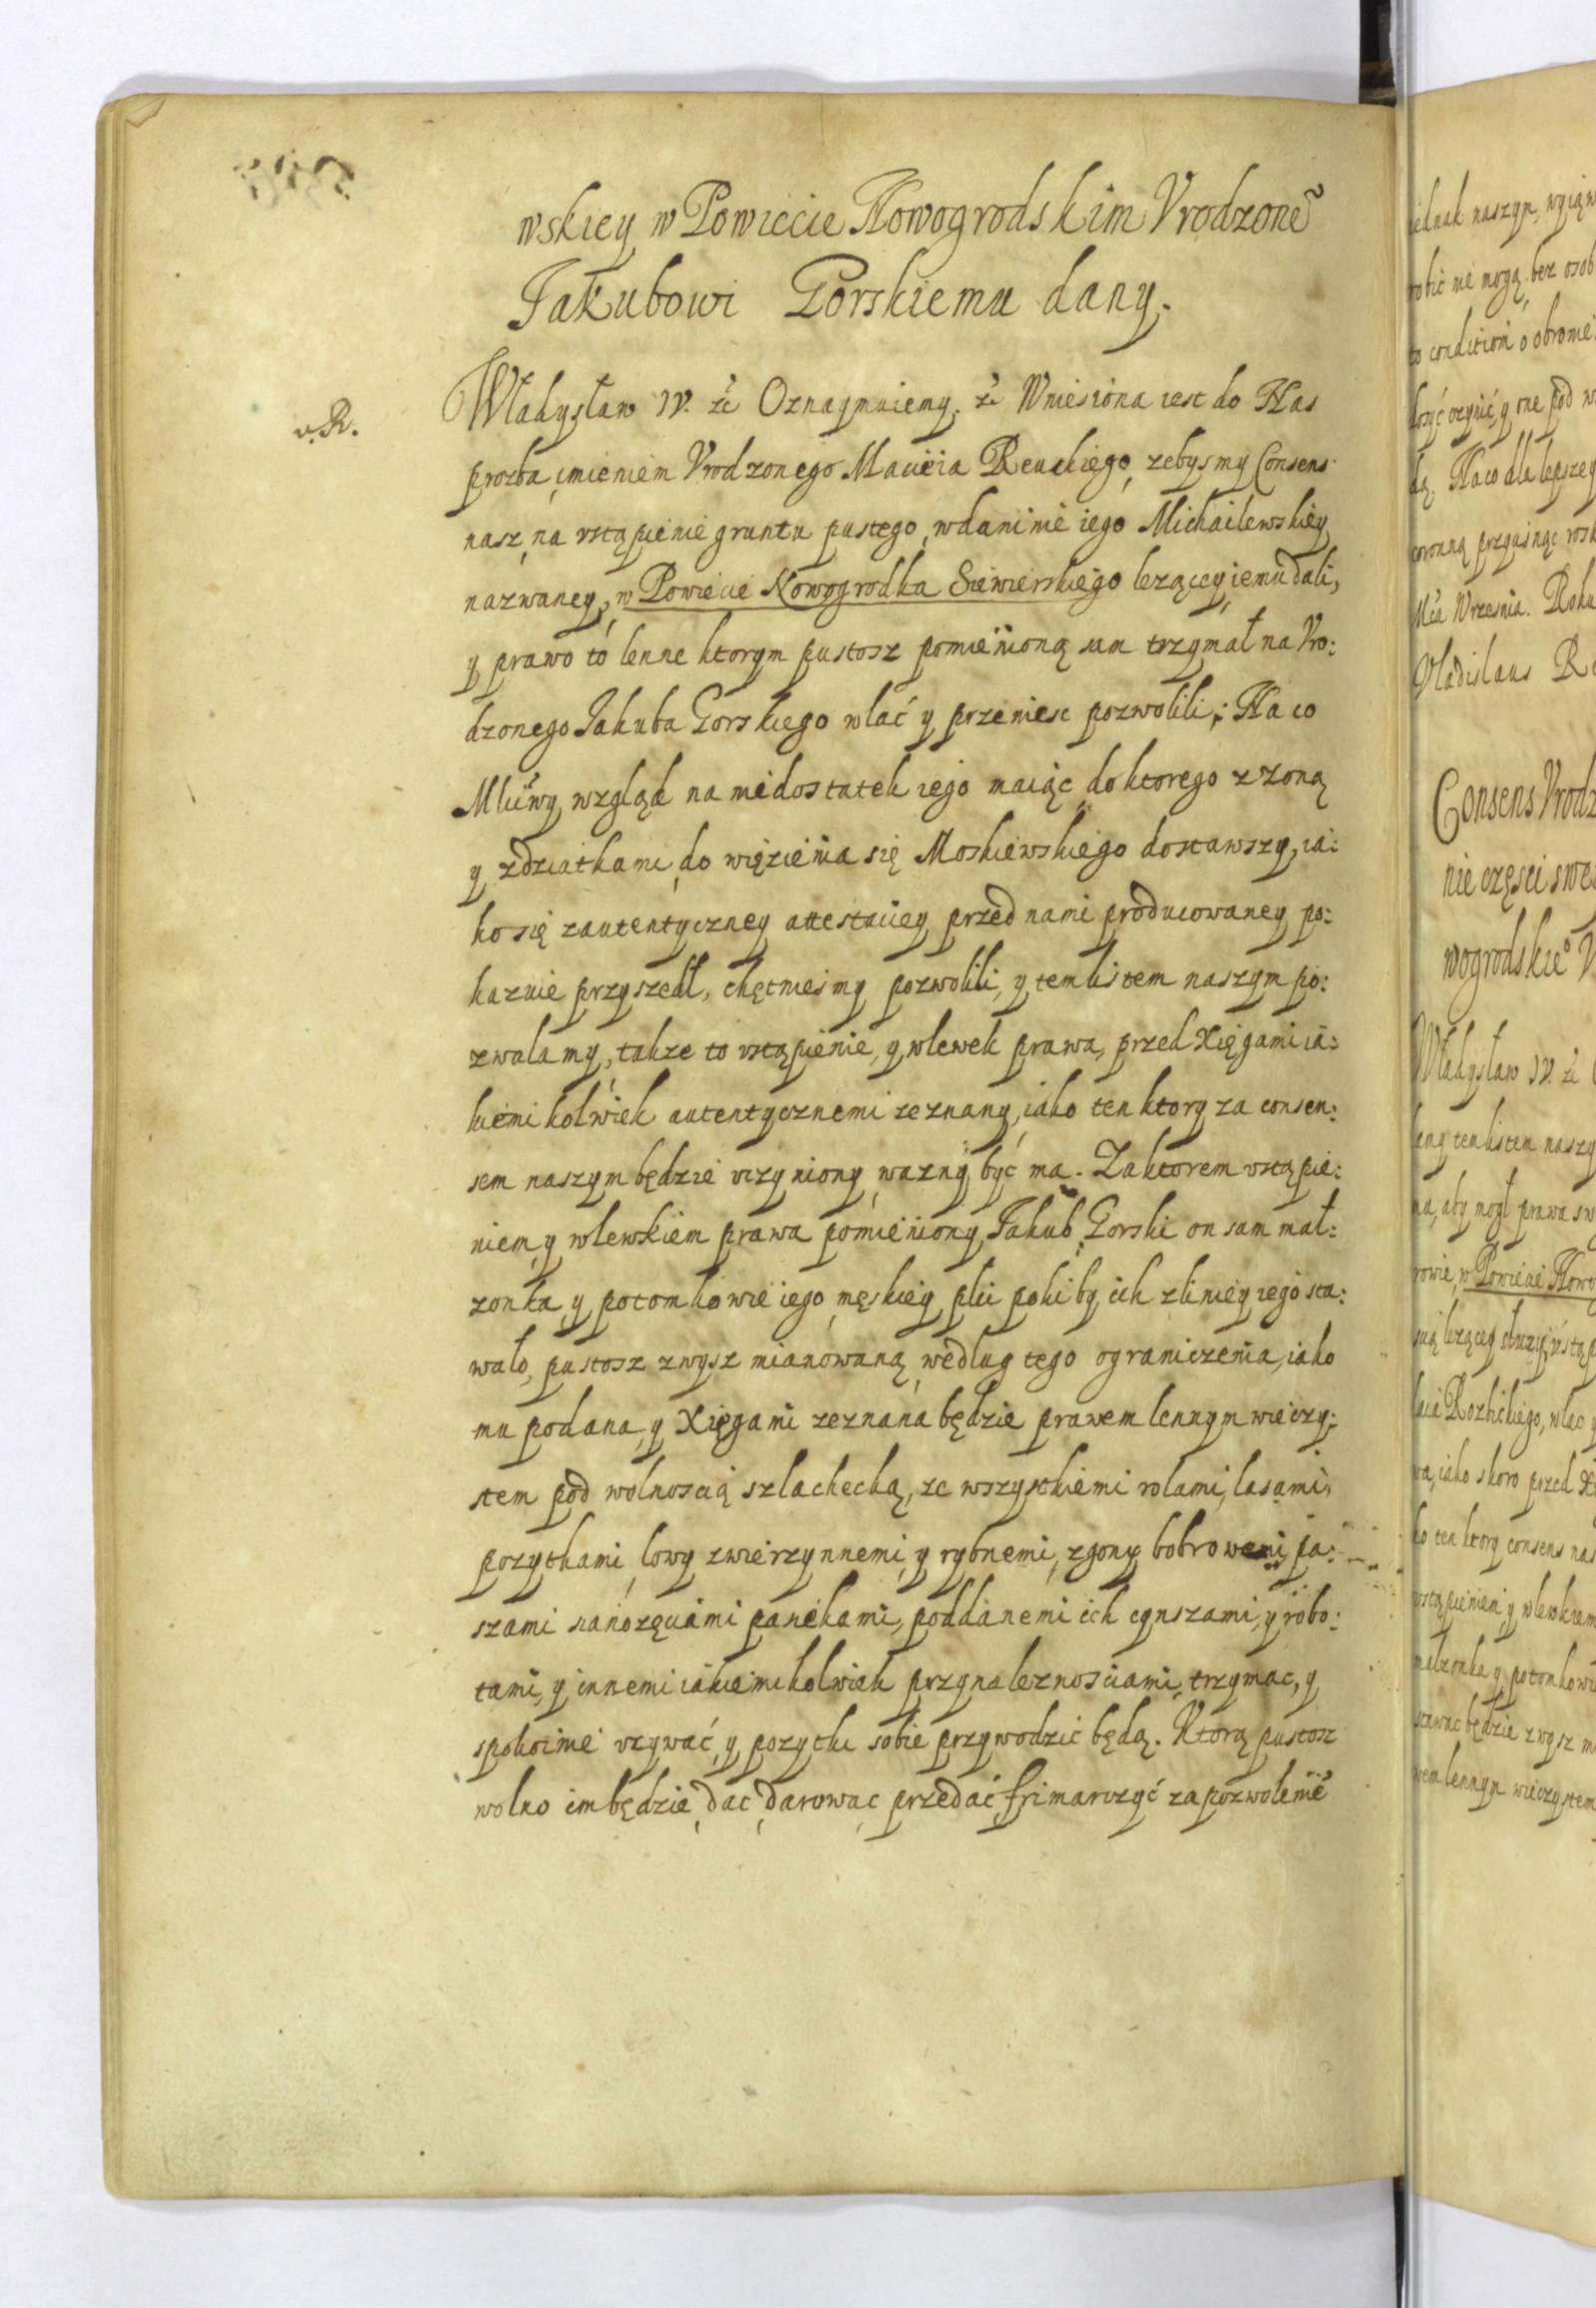 wskiey w Powiecie Nowogrodskim Vrodzonẽ
Jakubowi Gorskiemu dany.
v. R.
Władysław IV. &c Oznaymuiemy. &c Wniesiona iest do Nas
prozba imieniem Vrodzonego Macieia Reuckiego, zebysmy Consens
nasz na vstąpienie gruntu pustego wdaninie iego Michailewskiey
nazwaney, w Powiecie Nowogrodka Siewierskiego lezącey iemu dali,
y prawo to lenne ktorym pustosz pomienioną sam trzymał na Vro:
dzonego Jakuba Gorskiego wlać y przeniesc pozwolili; Na co
My wzgląd na niedostatek iego maiąc do ktorego z zoną
y zdziatkami do więzienia się Moskiewskiego dostawszy, ia:
ko się zautentyczney attestaciey przed nami producowaney po:
kazuie przyszedł, chętniesmy pozwolili, y tem listem naszym po:
zwalamy, takze to vstąpienie, y wlewek prawa, przed Xięgami ia:
kiemi kolwiek autentycznemi zeznany, iako ten ktory za consen:
sem naszym będzie vczyniony wazny być ma. Zaktorem vstąpie:
niem, y wlewkiem prawa pomieniony Jakub Gorski on sam mał:
zonka y potomkowie iego męskiey płci pokiby ich zliniey iego sta:
wało, pustosz zwysz mianowaną według tego ograniczenia, iako
mu podana y Xięgami zeznana będzie prawem lennym wieczy:
stem pod wolnoscią szlachecką, ze wszystkiemi rolami, lasami,
pozytkami, łowy zwierzynnemi, y rybnemi, zgony bobrowemi pa:
szami sianozęciami pasiekami, poddanemi ich cynszami, y robo:
tami, y innemi iakiemikolwiek przynaleznosciami trzymac, y
spokoinie vzywać, y pozytki sobie przywodzić będą. Którą pustosz
wolno im będzie dac darowac przedać frimarczyć za pozwolenie